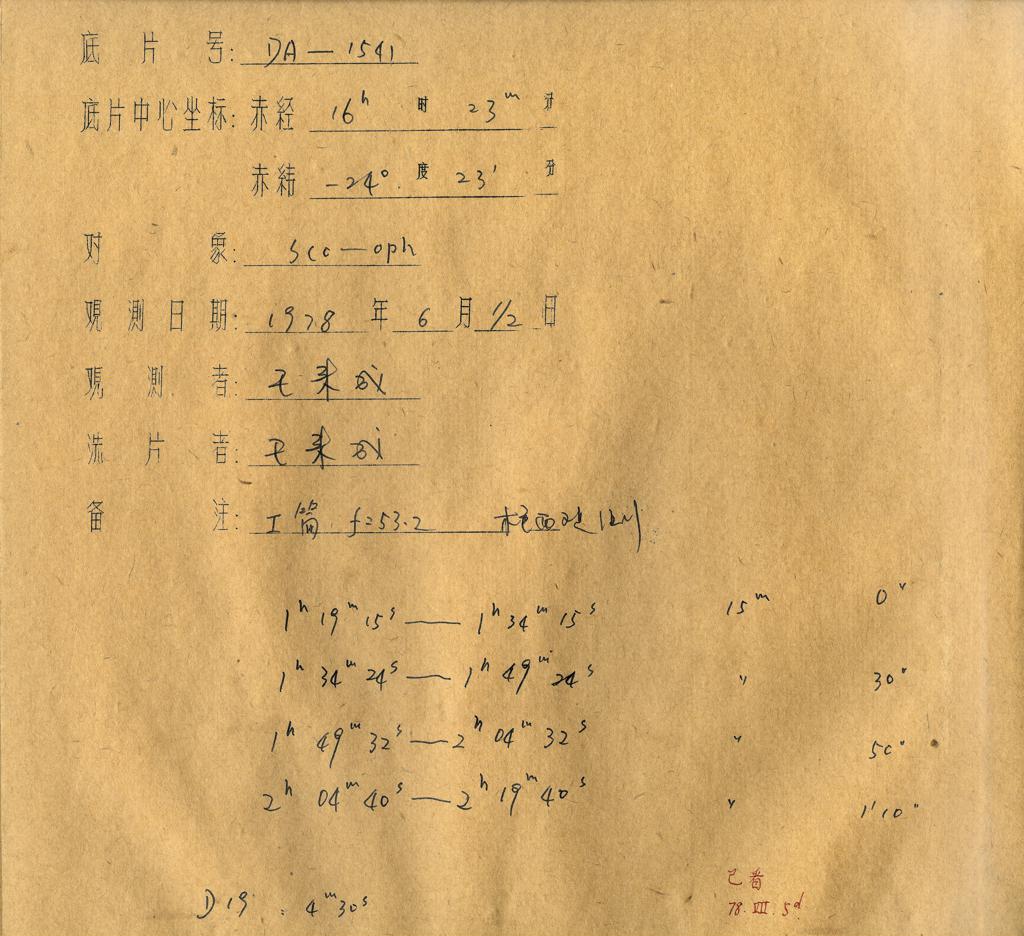 底片号: DA—1541
底片中心坐标: 赤经 16ʰ 时 23ᵐ 分
赤纬 -24° 度 23′ 分
对象: Sco—oph
观测日期: 1978 年 6 月 1/2 日
观测者: 王来成
洗片者: 王来成
备注: I 筒 f=53.2
1ʰ 19ᵐ 15ˢ — 1ʰ 34ᵐ 15ˢ 15ᵐ 0″
1ʰ 34ᵐ 24ˢ — 1ʰ 49ᵐ 24ˢ 〃 30″
1ʰ 49ᵐ 32ˢ — 2ʰ 04ᵐ 32ˢ 〃 50″
2ʰ 04ᵐ 40ˢ — 2ʰ 19ᵐ 40ˢ 〃 1′10″
D19: 4ᵐ30ˢ
已看
78. VIII. 5ᵈ